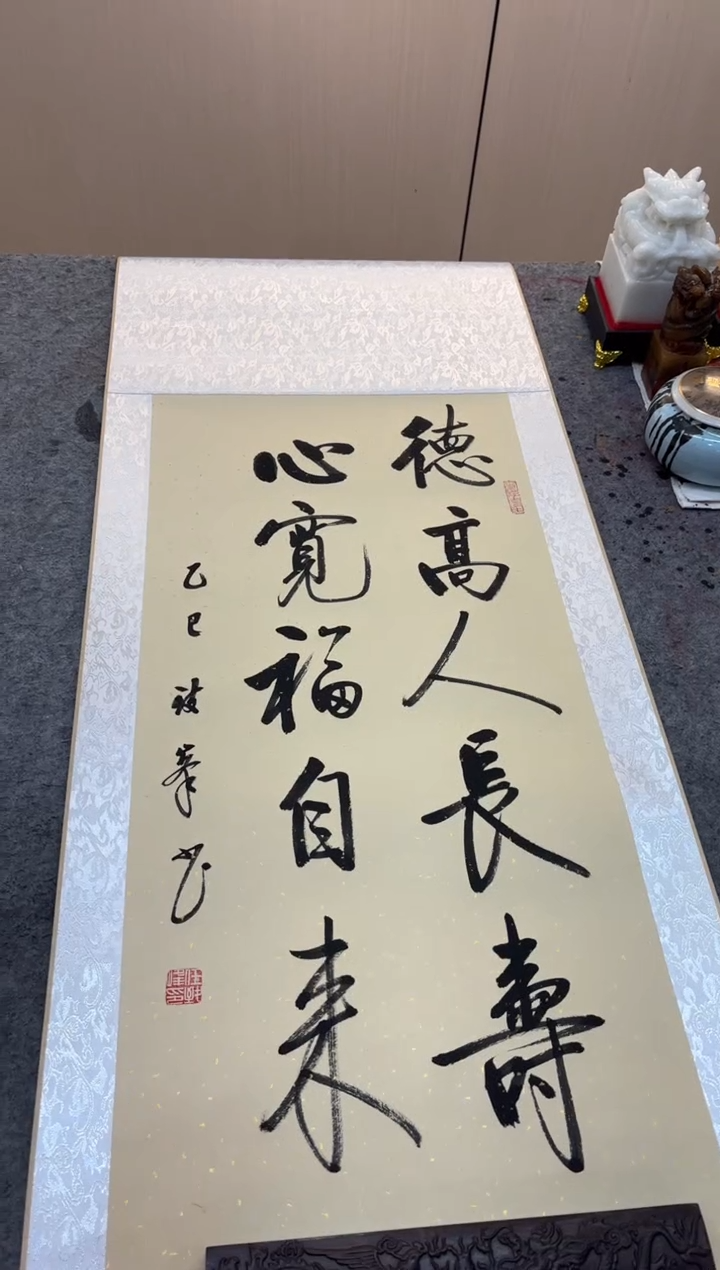 德高人長壽
心寬福自来
乙巳 峯书